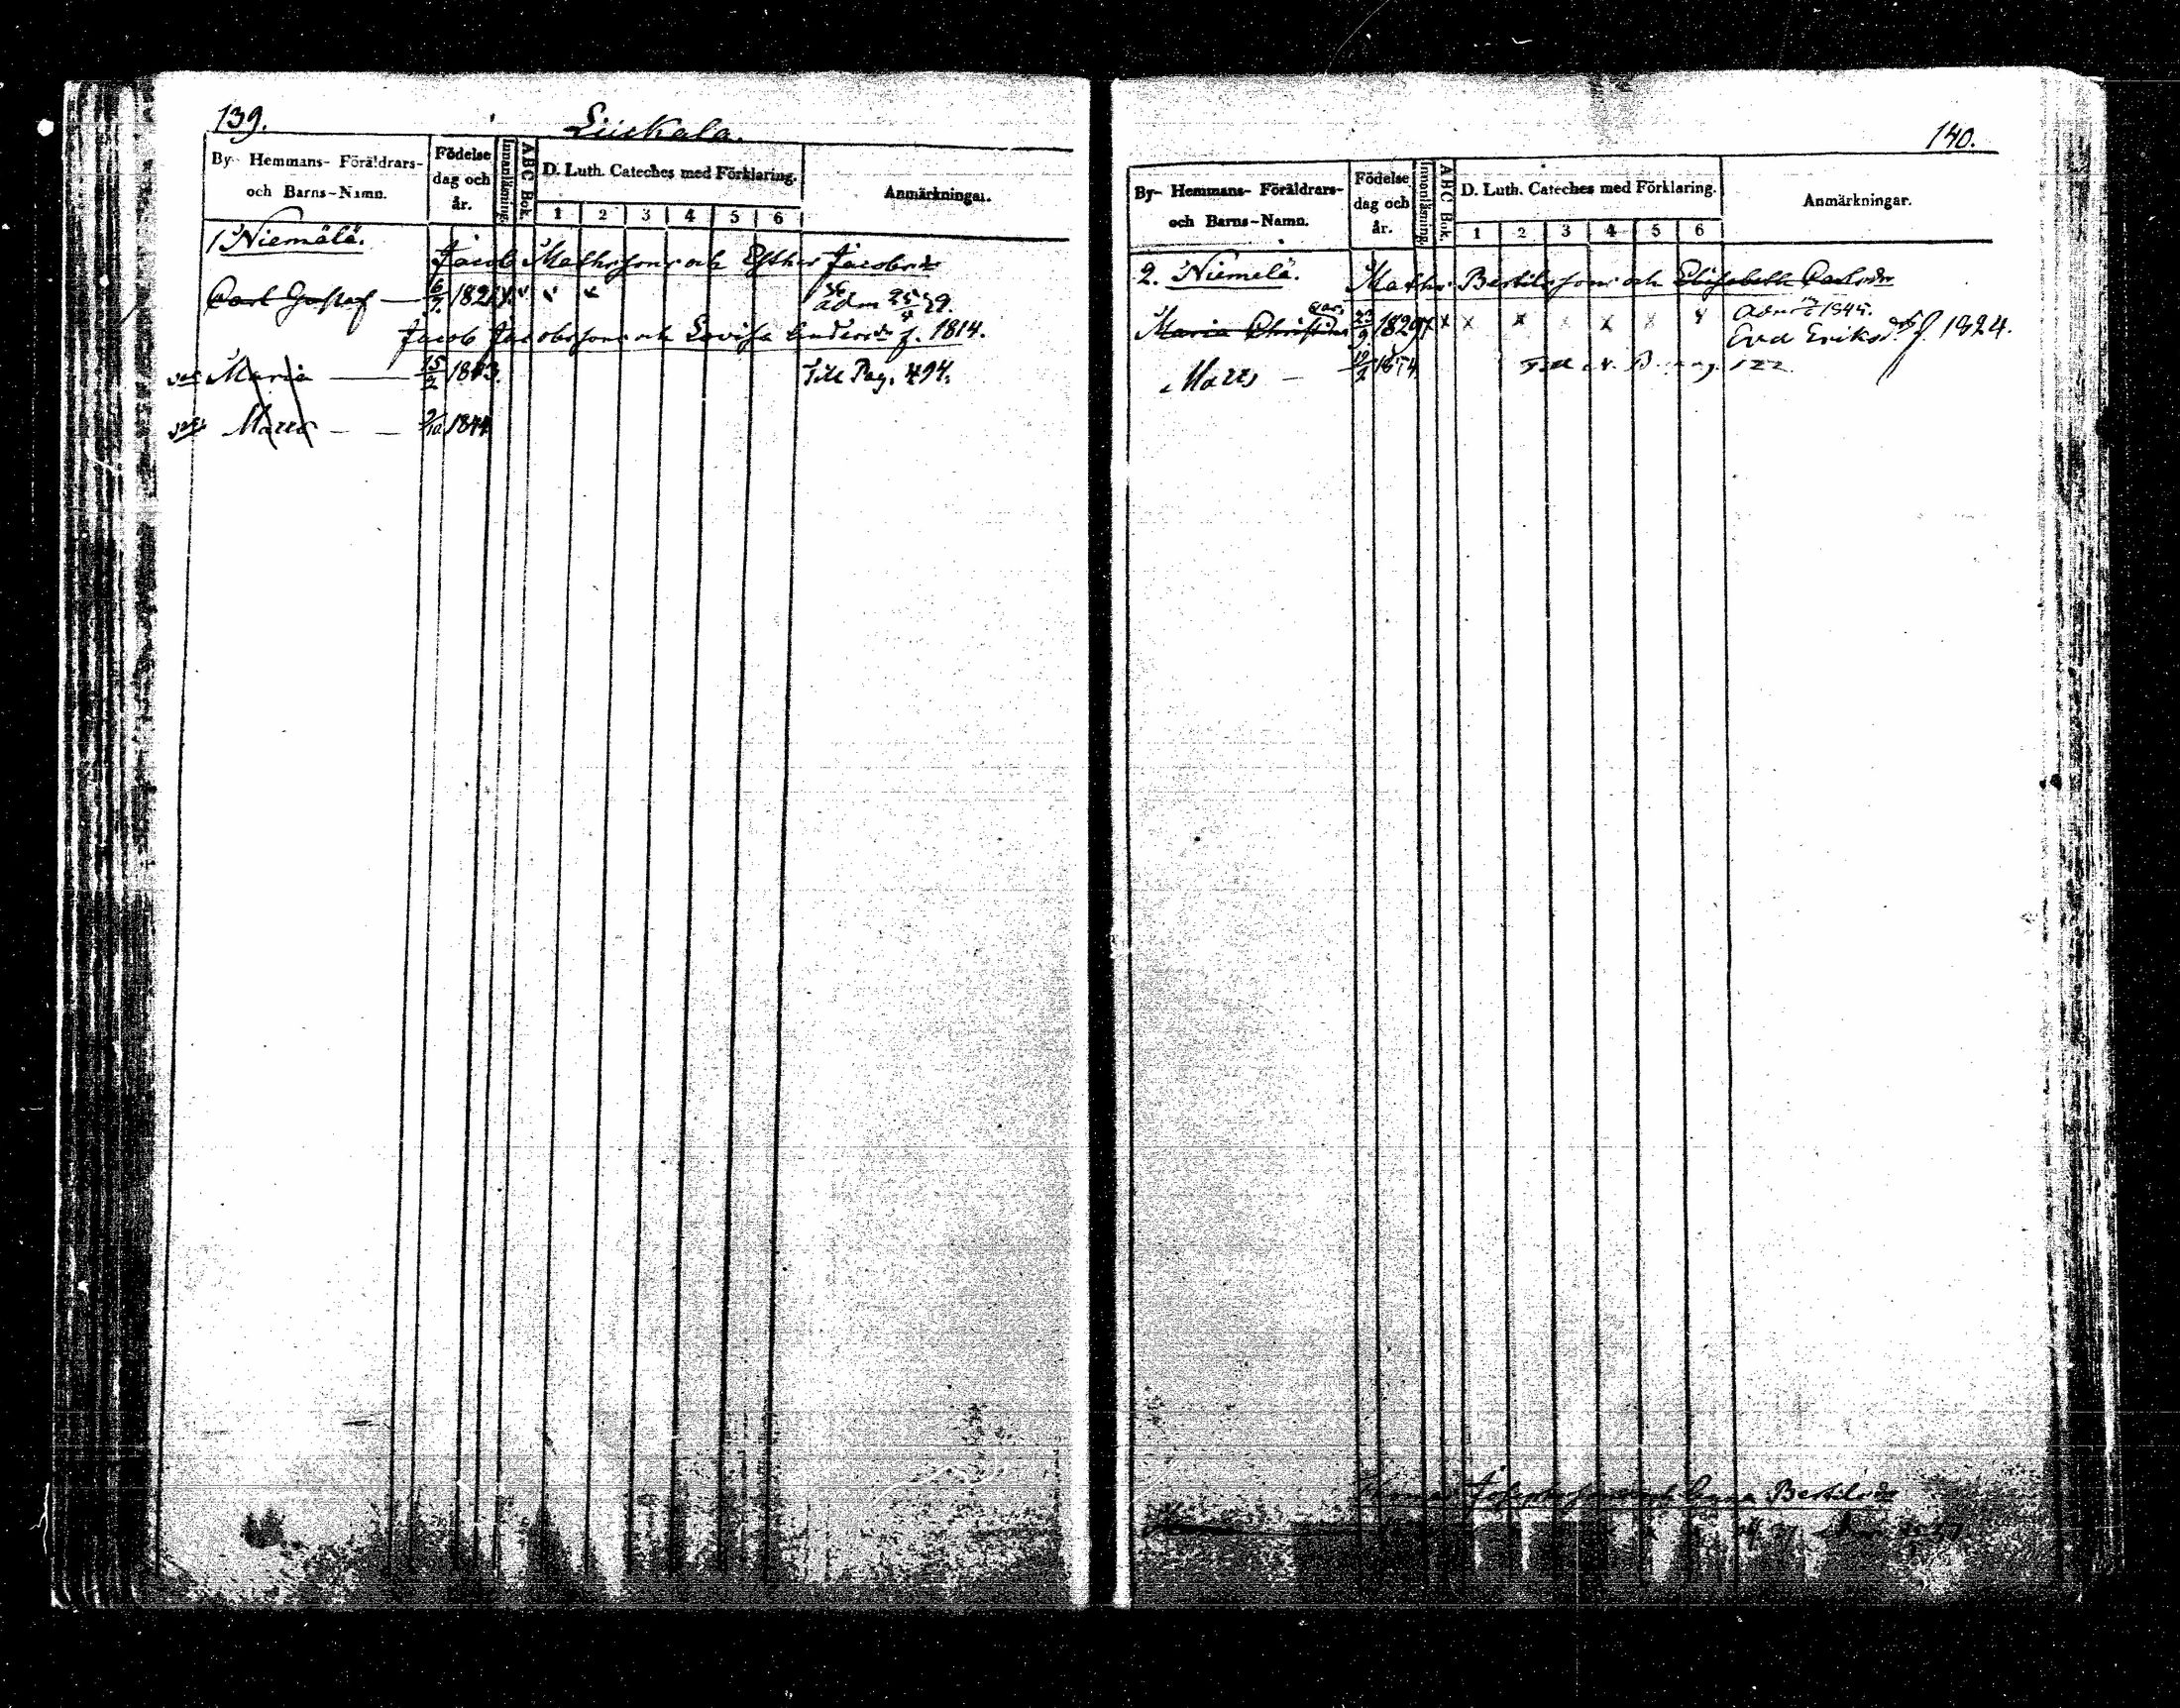 139.
Liukala.
By- Hemmans- Föräldrars-
och Barns-Namn.
Födelse
dag och
år.
Innanläsning.
ABC Bok.
D. Luth. Cateches med Förklaring.
1 2 3 4 5 6
Anmärkningar.
1 Niemälä.
Jacob Mathsson och Esther Jacobsdr
Carl Gustaf — 6/7 1821
adm 25 39.
Jacob Jacobsson och Lovisa Andersdr f. 1814.
Maria — 15/2 1843.
Till Pag. 494.
1844
140.
By- Hemmans- Föräldrars-
och Barns-Namn.
Födelse
dag och
år.
Innanläsning.
ABC Bok.
D. Luth. Cateches med Förklaring.
1 2 3 4 5 6
Anmärkningar.
2. Niemelä.
Maths Bertilsson och Elisabeth Carlsdr
Maria Christina 23/9 1829
x x x x x x
Adm 1845.
Eva Eriksdr f. 1824.
Matts — 19/2
Till N. B. pag. 122
Anna Bertilsdr